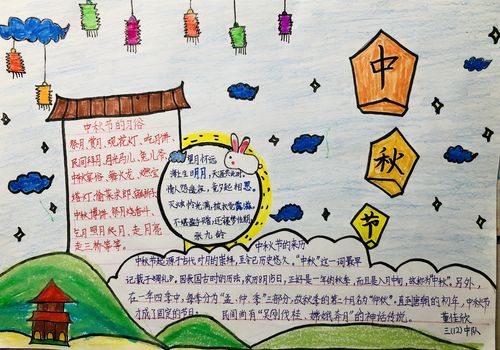 中
秋
节
中秋节的习俗
祭月、赏月、观花灯、吃月饼、
民间拜月、月光马儿、兔儿爷、
中秋宴俗、舞火龙、燃宝
塔灯、偷菜求郎、
中秋博饼、祭月烧番斗、
乞月照月、走月亮
走三桥等等。
望月怀远
海上生明月，天涯共此时。
情人怨遥夜，竟夕起相思。
灭烛怜光满，披衣觉露滋。
不堪盈手赠，还寝梦佳期。
张九龄
中秋节的来历
中秋节起源于古代对月的崇拜，至今已历史悠久。“中秋”这一词最早
记载于《周礼》。因我国古时的历法，农历8月15日，正好是一年的秋季，而且是八月中旬，故称为“中秋”。另外，
在一年四季中，每季分为“孟、仲、季”三部分，故秋季的第二个月名为“仲秋”。直到唐朝的初年，中秋节
才成了固定的节日。 民间尚有“吴刚伐桂、嫦娥奔月”的神话传说。
董佳欣
三（12）中队